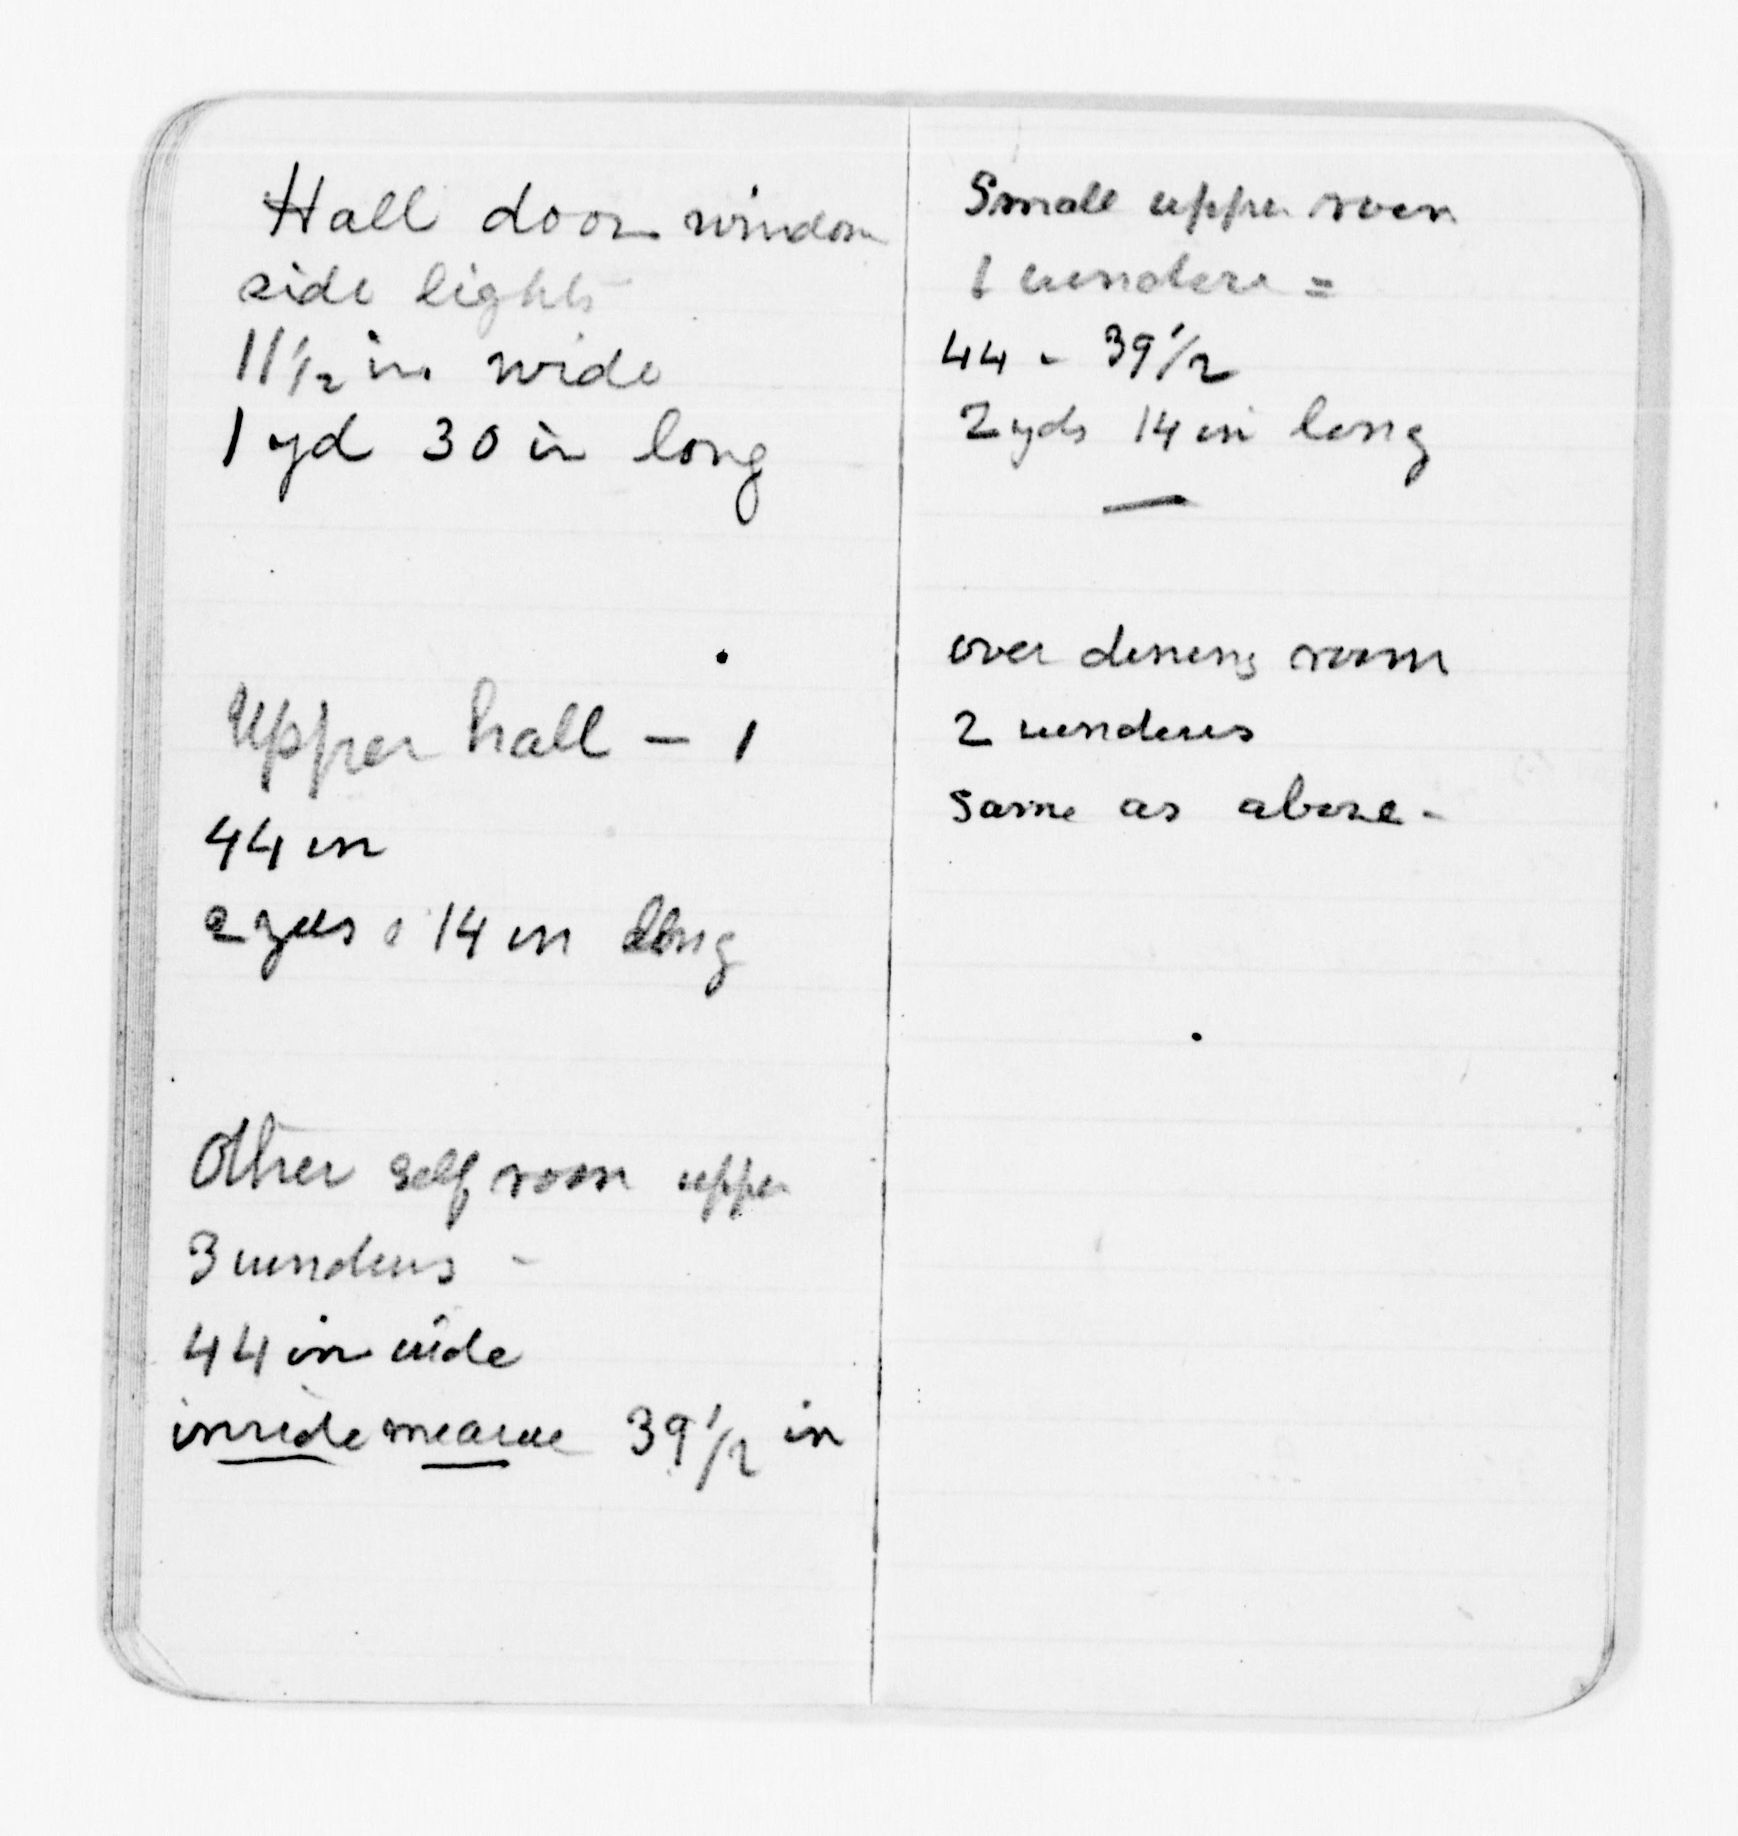 Hall door window
side lights
11 1/2 in wide
1 yd 30 in long
Upper hall – 1
44 in
2 yds 14 in long
Other self room upper
3 windows -
44 in wide
inside measure 39 1/2 in
Small upper room
1 window =
44 - 39 1/2
2 yds 14 in long
over dining room
2 windows
Same as above -